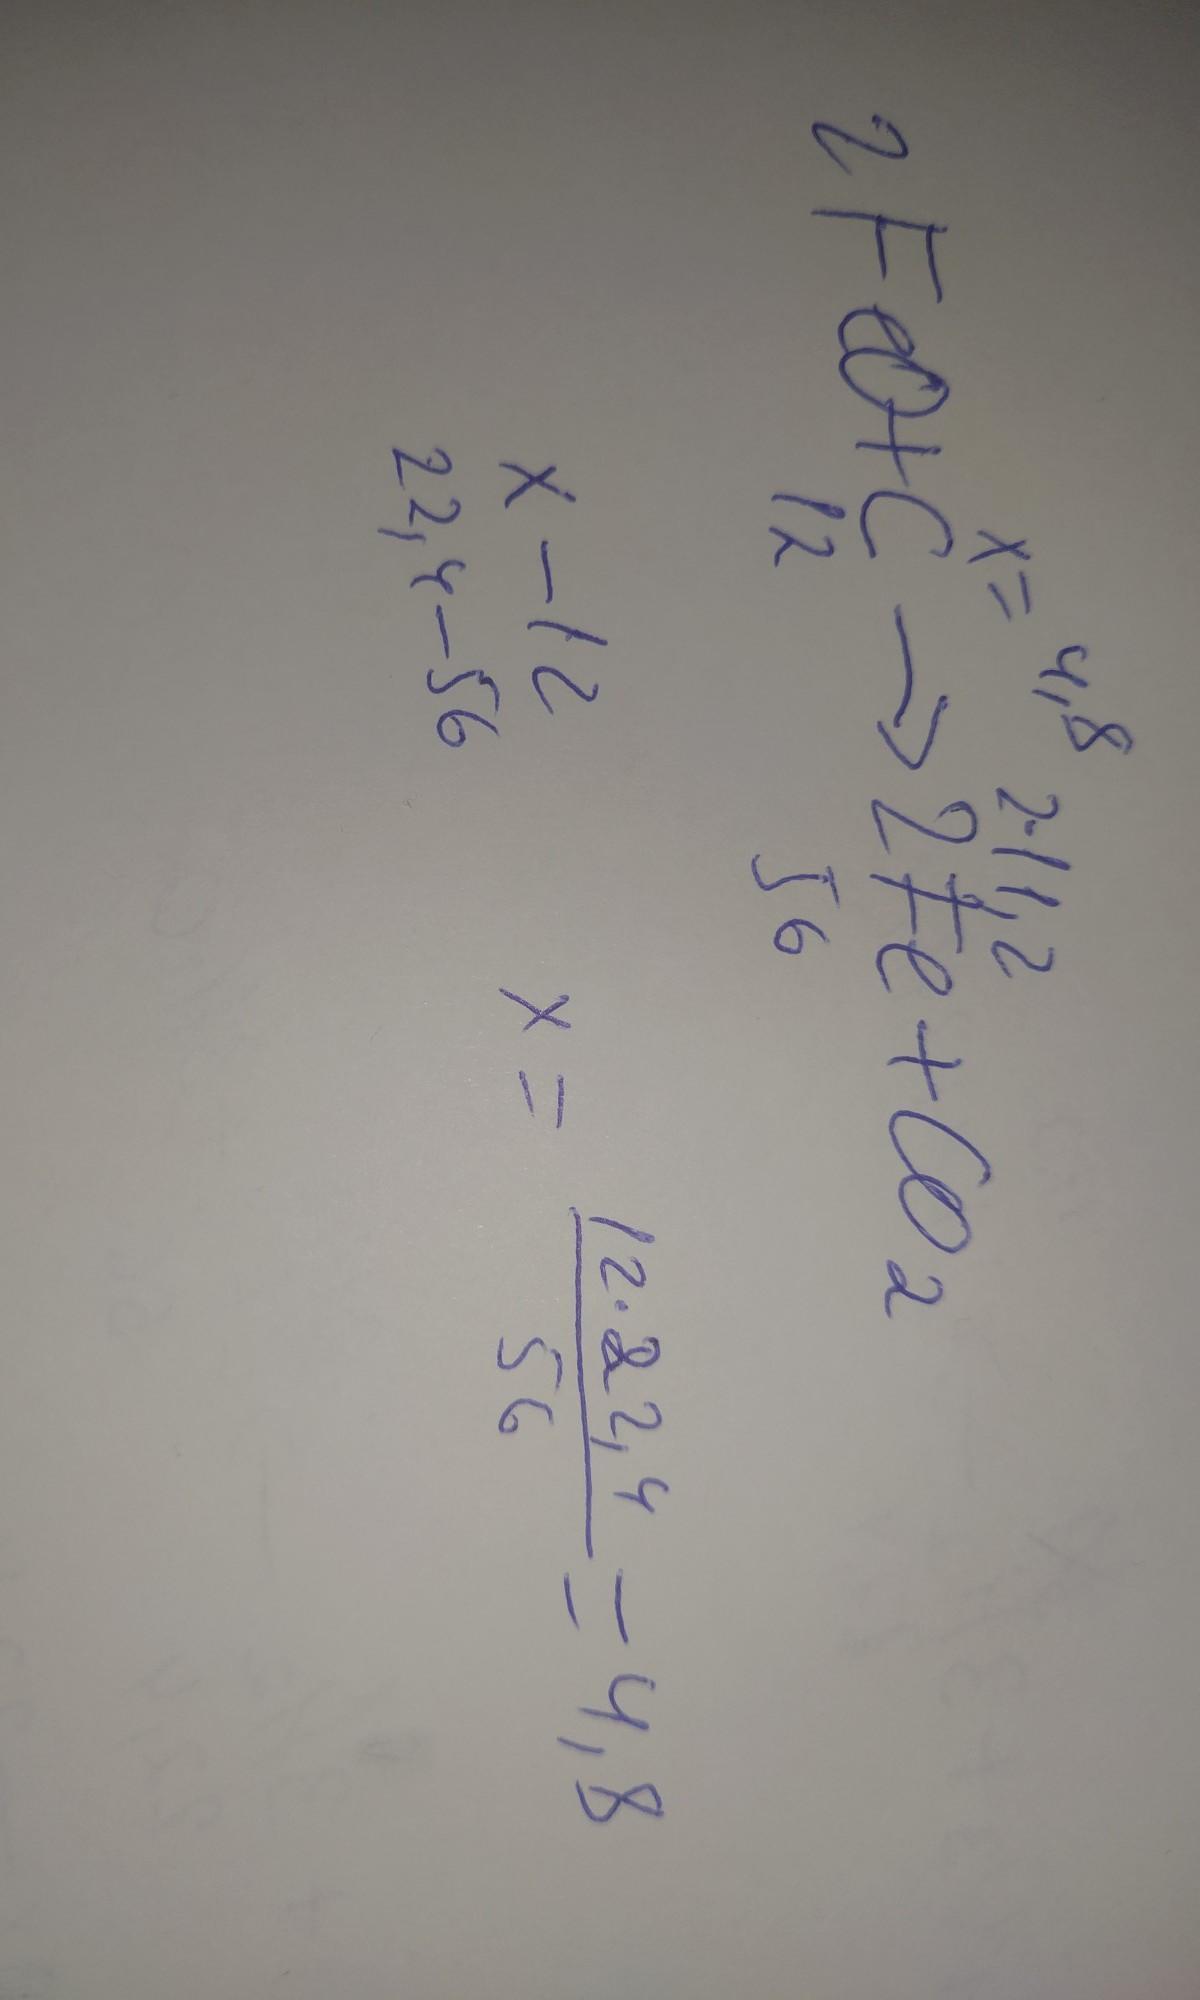 x = 4,8 2·11,2
2 FeO + C → 2Fe + CO2
12 56
x – 12
22,4 – 56
x = 12·22,4 / 56 = 4,8